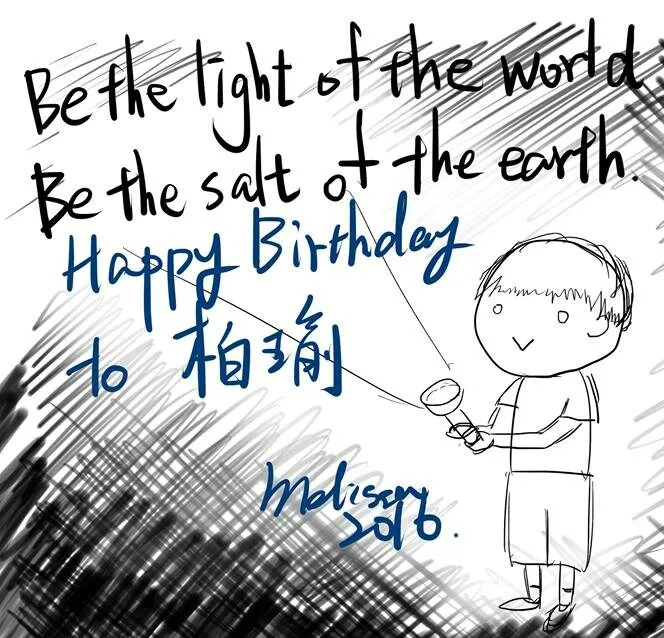 Be the light of the world
Be the salt of the earth.
Happy Birthday
to 柏瑜
Melissa
2016.